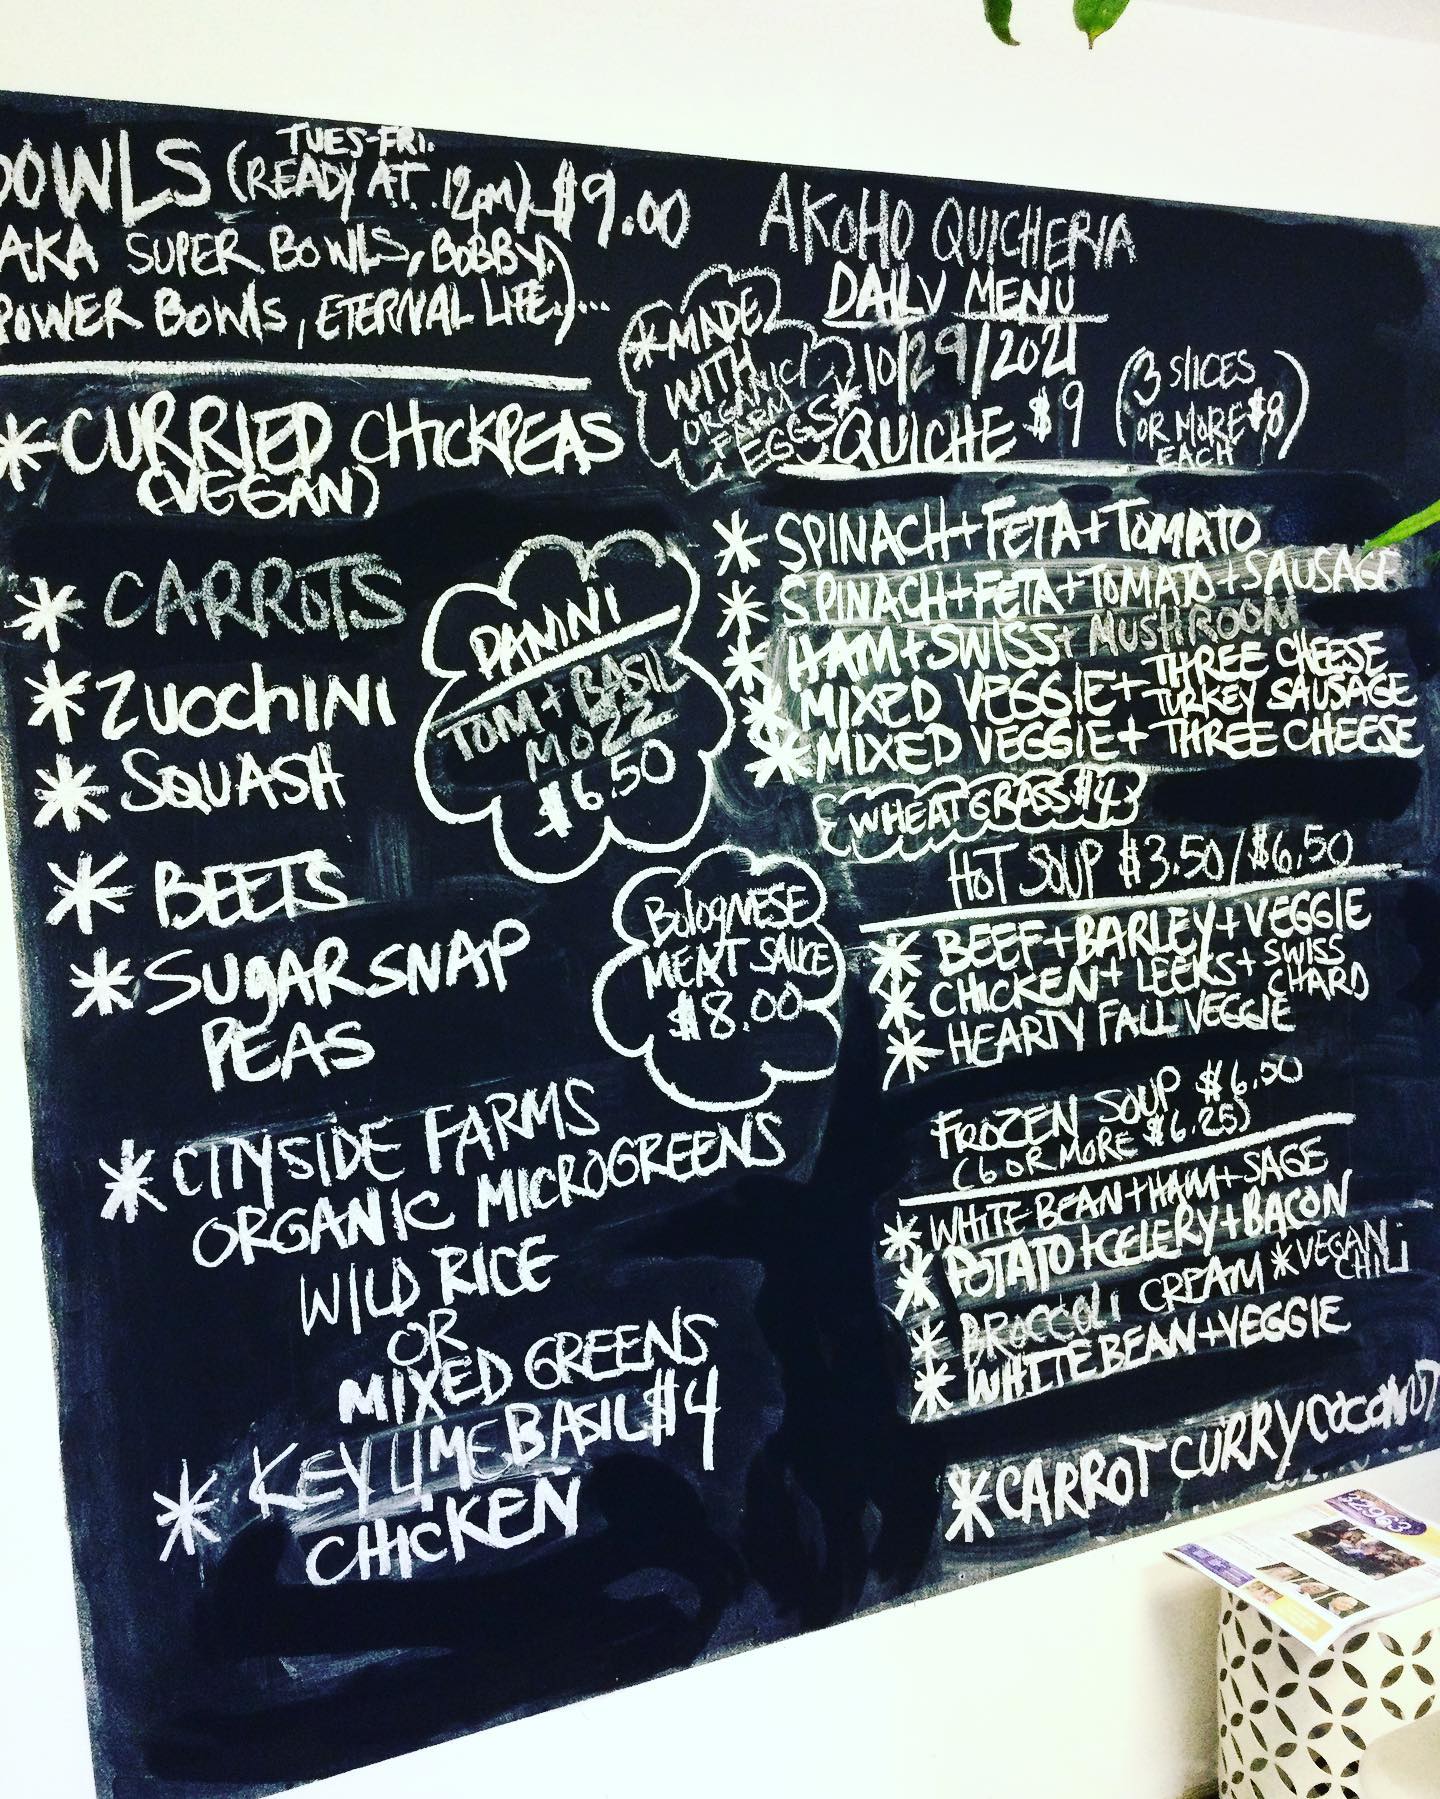 BOWLS (READY AT 12pm) $9.00
TUES-FRI.
AKA SUPER BOWLS, BOBBY,
POWER BOWLS, ETERNAL LIFE.)...
*CURRIED CHICKPEAS
(VEGAN)
* CARROTS
* ZUCCHINI
* SQUASH
* BEETS
* SUGAR SNAP
PEAS
* CITYSIDE FARMS
ORGANIC MICROGREENS
WILD RICE
OR
MIXED GREENS
* KEYLIME BASIL $4
CHICKEN
PANINI
TOM + BASIL
MOZZ
$6.50
BOLOGNESE
MEAT SAUCE
$8.00
AKOHO QUICHERIA
DAILY MENU
10/29/2021
*MADE
WITH
ORGANIC
FARM
EGGS*
QUICHE $9
(3 SLICES
OR MORE $8)
EACH
* SPINACH+FETA+TOMATO
* SPINACH+FETA+TOMATO+SAUSAGE
* HAM+SWISS+MUSHROOM
* MIXED VEGGIE+THREE CHEESE
TURKEY SAUSAGE
* MIXED VEGGIE+THREE CHEESE
WHEATGRASS $4
HOT SOUP $3.50/$6.50
* BEEF+BARLEY+VEGGIE
* CHICKEN+LEEKS+SWISS
CHARD
* HEARTY FALL VEGGIE
FROZEN SOUP $6.50
(6 OR MORE $6.25)
* WHITE BEAN+HAM+SAGE
* POTATO+CELERY+BACON
* BROCCOLI CREAM *VEGAN
CHILI
* WHITE BEAN+VEGGIE
* CARROT CURRY COCONUT
32963